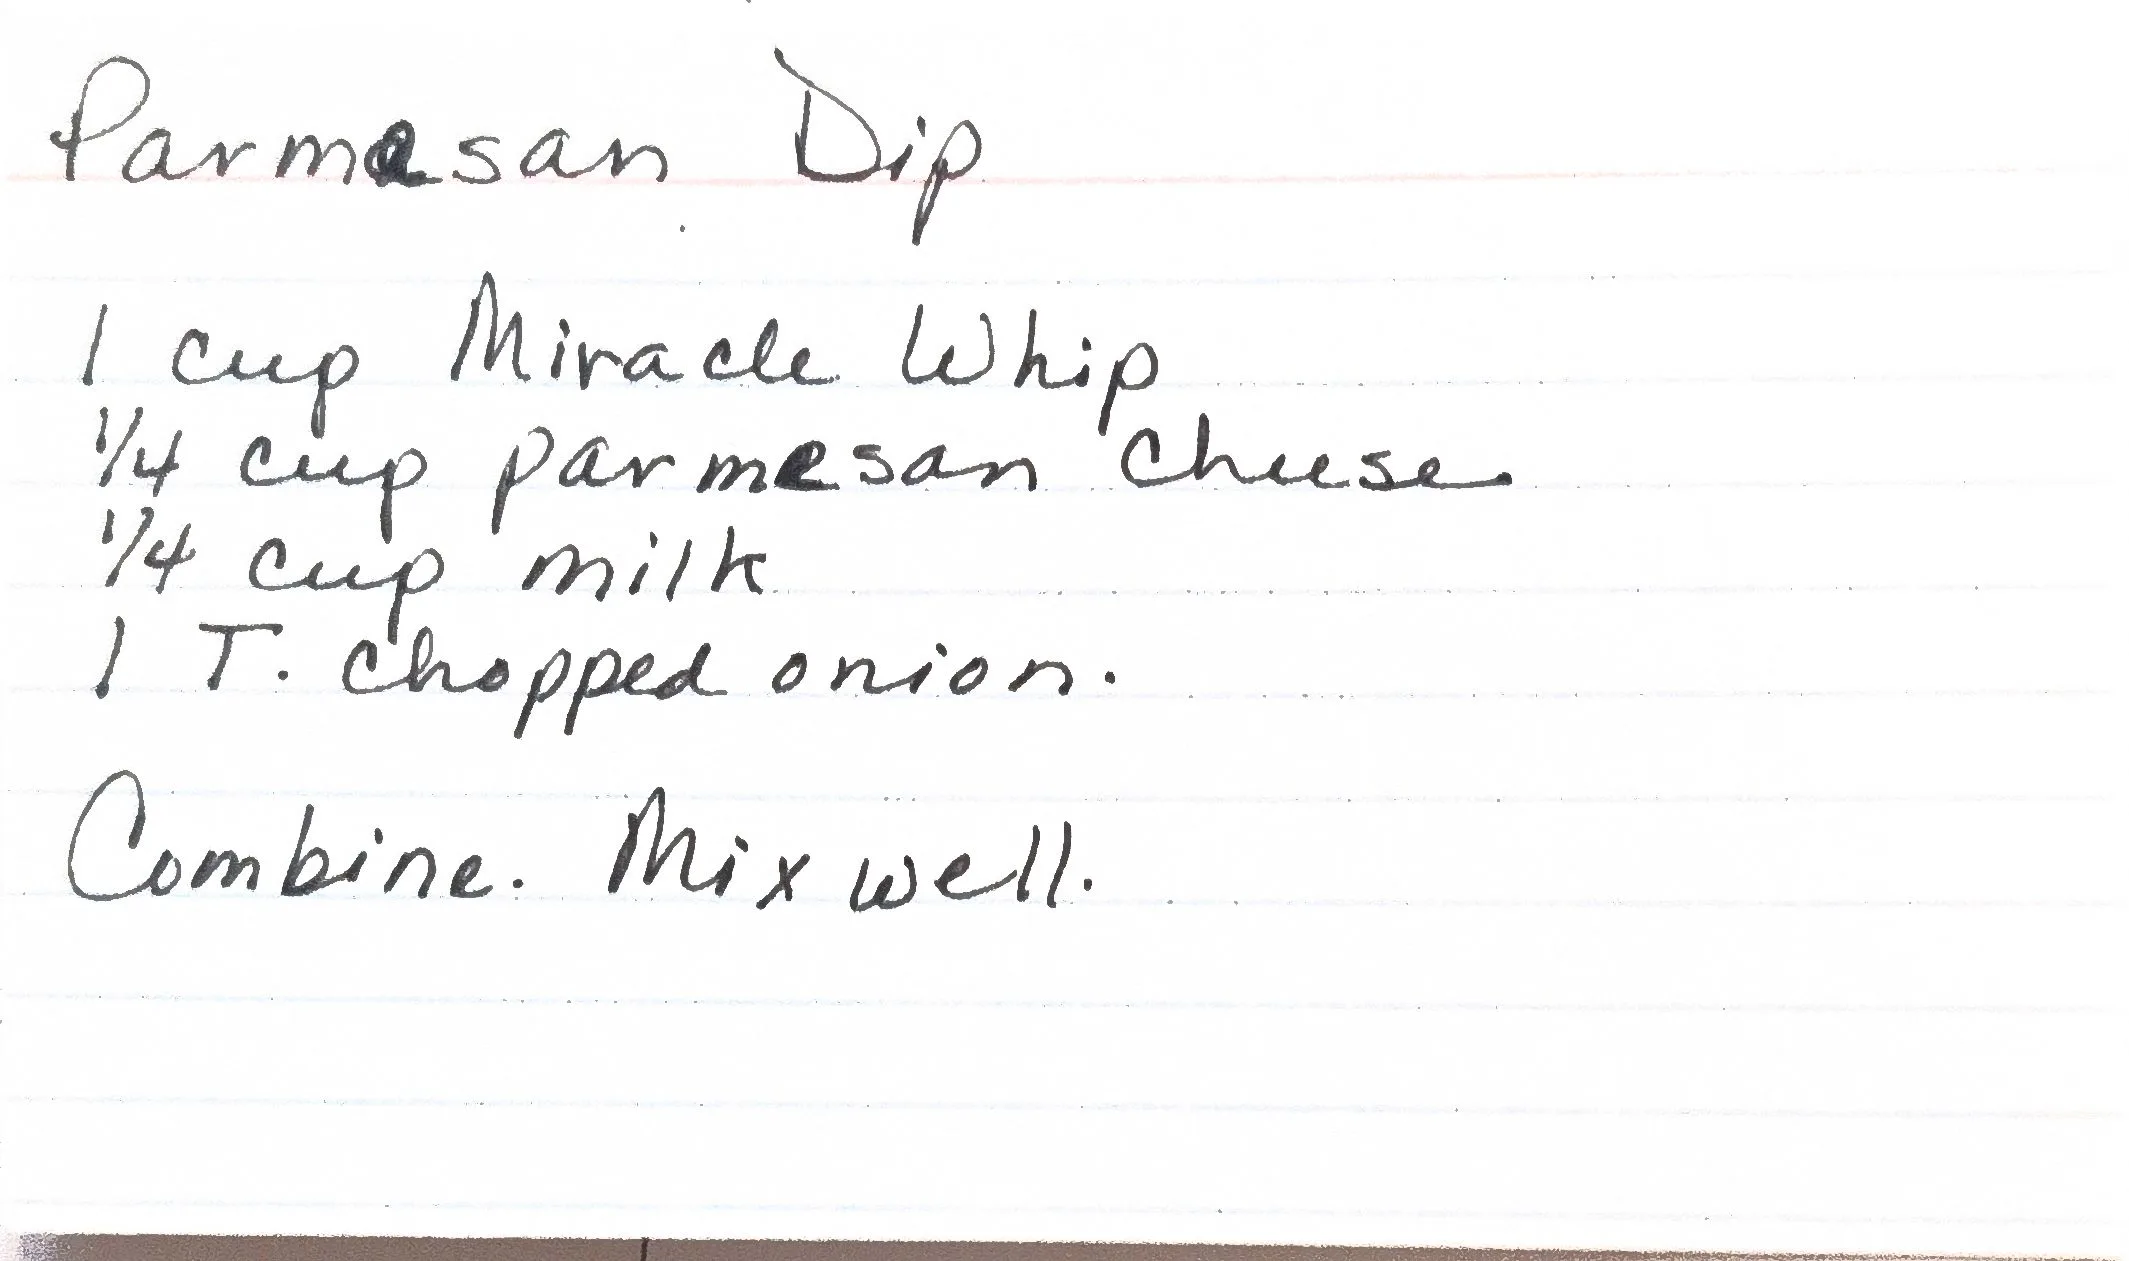 Parmesan Dip
1 cup Miracle Whip
1/4 cup parmesan cheese
1/4 cup milk
1 T. chopped onion.
Combine. Mix well.